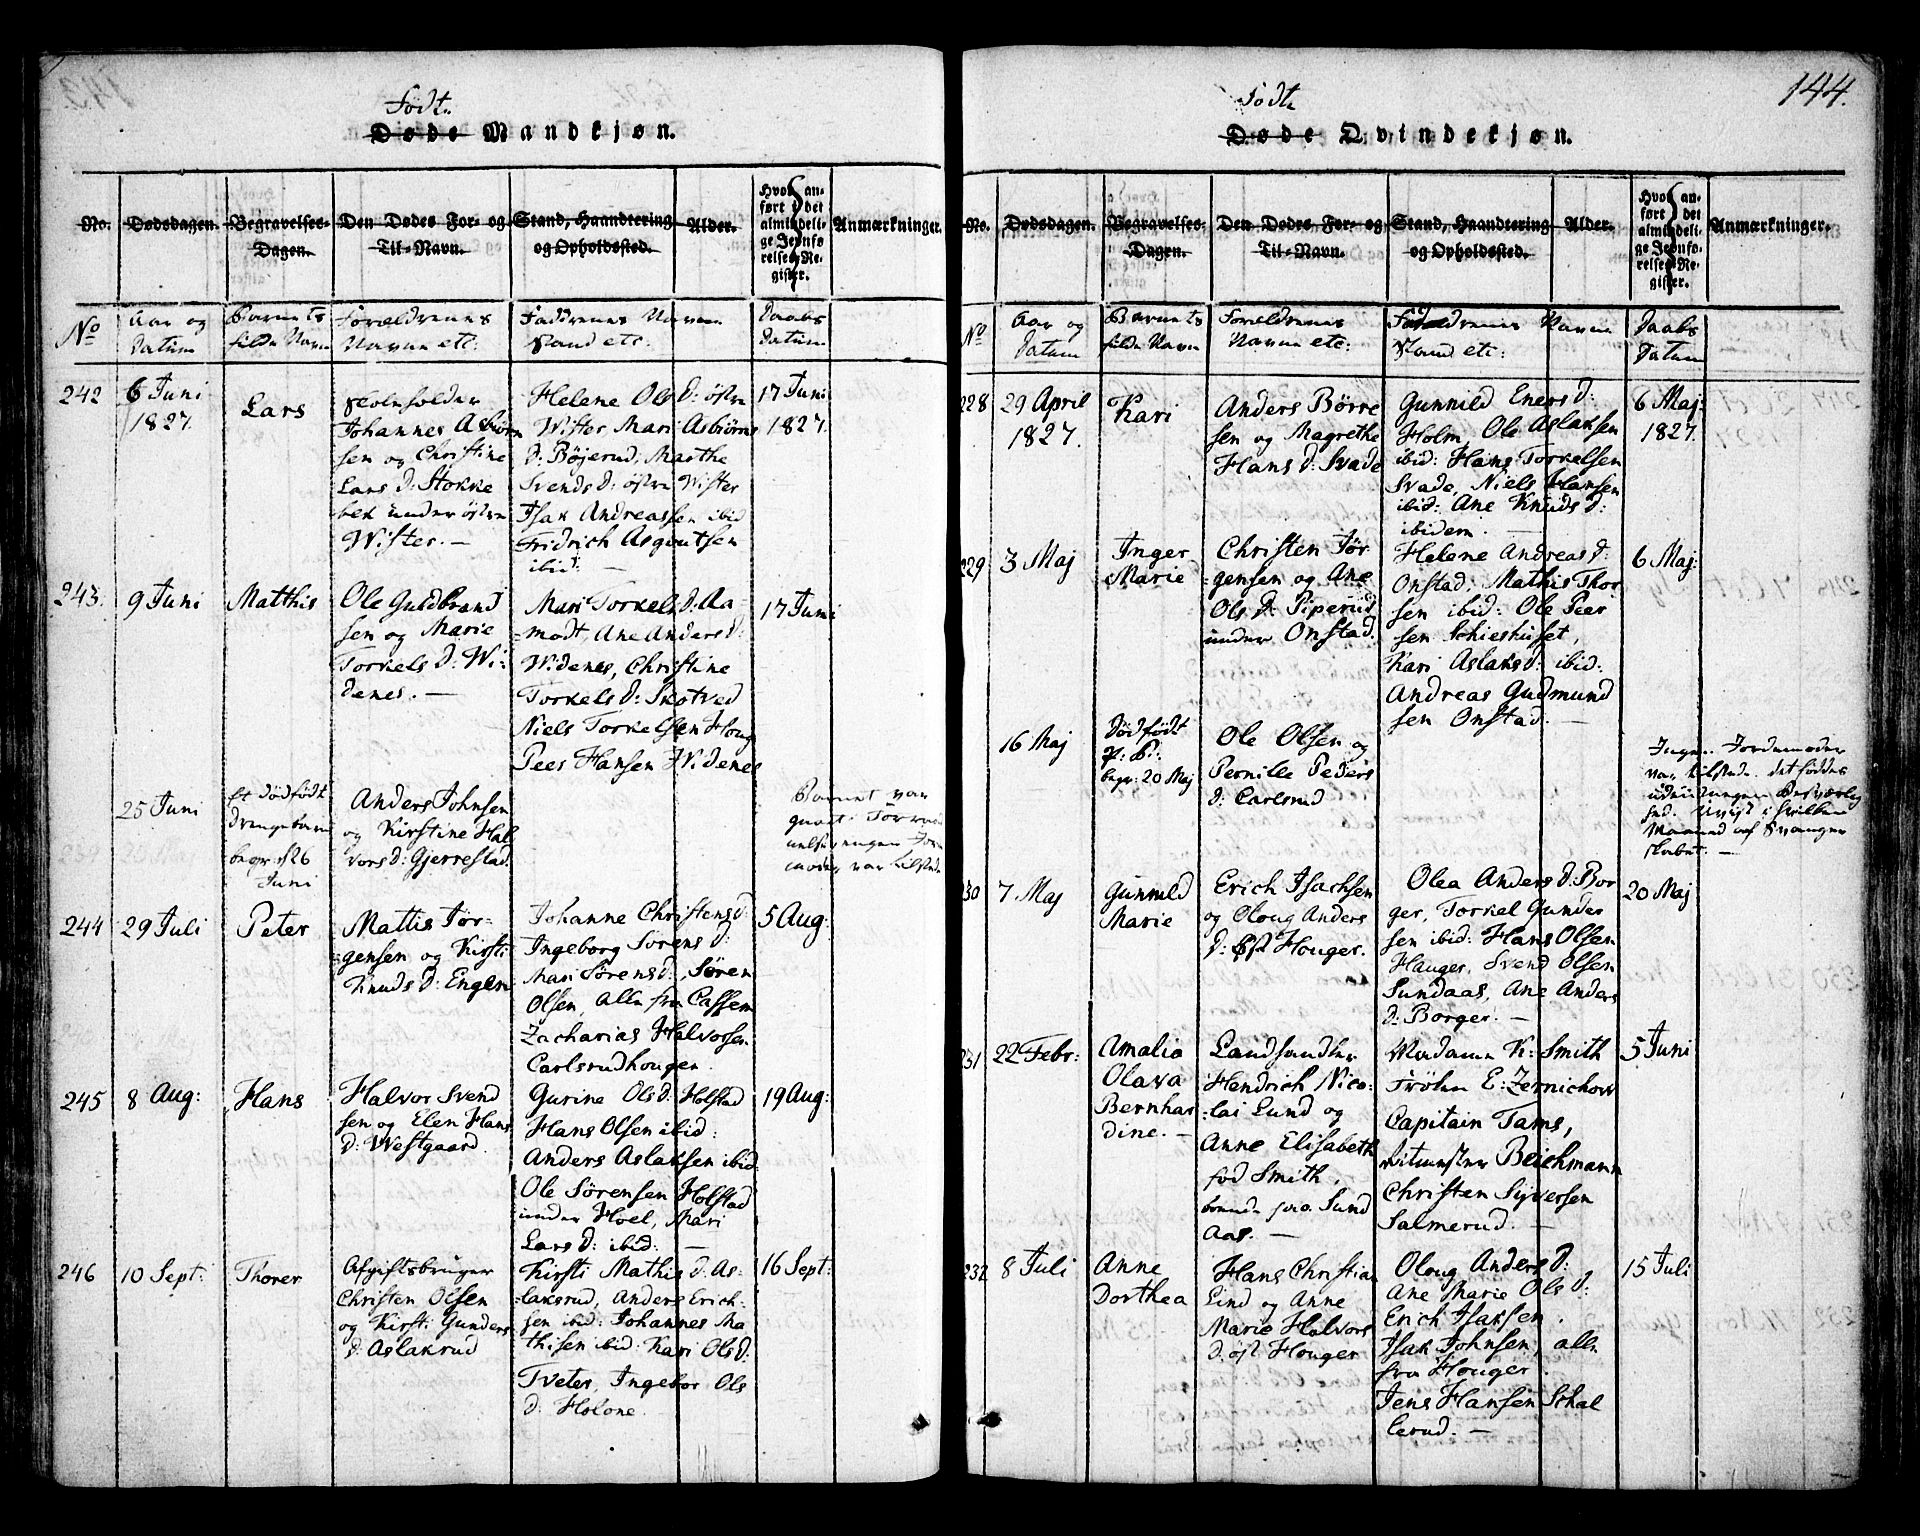 Født
Døde Mandkjøn.
No.
Dødsdagen.
Begravelses-
Dagen.
Den Dødes For- og
Til-Navn.
Stand, Haandtering
og Opholdssted.
Alder.
Hvor an-
ført i det
almindeli-
ge Jevnfø-
relses-Re-
gister.
Anmærkninger.
No
Aar og
Datum
Barnets
fulde Navn
Forældrenes
Navn etc:
Faddrenes Navn
Stand etc:
Daabs
Datum
242
6 Juni
1827.
Lars
Johannes Asbiørn
sen og Christine
Lars d: Stokke
bek under østre
Wister. —
Helene Ols d: østre
Wister, Mari Asbiørns
d: Böjerud, Marthe
Svends d: østre Wister
Isak Andreassen ibid
Fridrich Asgoutsen
ibid: —
17 Juni
1827.
243.
9 Juni
Matthis
Ole Guldbrand
sen og Marie
Torkels d: Wi-
denes. —
Mari Torkels d: Aa-
modt, Ane Anders d:
Widenes, Christine
Torkels d: Skotved
Niels Torkelsen Houg
Peer Hansen Widenes
17 Juni
25 Juni
et dødfødt
Drengebarn
begr: d 26
Juni
Anders Johnsen
og Kirstine Hal
vors d: Gjerrestad.
Barnet var
var tilstede
244
29 Juli
Peter
Mattis Jør-
gensen og Kirsti
Knuds d: Engen
Johanne Christens d:
Ingeborg Sørens d:
Mari Sørens d: Søren
Olsen, alle fra Cassen
Zacharias Halvorsen
Carlsrudhougen.
5 Aug:
245
8 Aug:
Hans
Halvor Svend
sen og Elen Hans
d: Westgaard.
Gurine Ols d: Holstad
Hans Olsen ibid:
Anders Aslaksen ibid
Ole Sørensen Holstad
under Hoel, Mari
Lars d: ibid: —
19 Aug:
246
10 Sept:
Thorer
Afgiftsbruger
Christen Olsen
og Kirsti Gunders
d: Aslakrud
Kirsti Mathis d: As-
laksrud, Anders Erich-
sen ibid: Johannes Ma
thisen ibid: Kari Ols d:
Tveter, Ingebor Ols
d: Holone.
16 Sept:
144.
Født
Døde Qvindekjøn.
No.
Dødsdagen.
Begravelses-
Dagen.
Den Dødes For- og
Til-Navn.
Stand, Haandtering
og Opholdssted.
Alder.
Hvor an-
ført i det
almindeli-
ge Jevnfø-
relses-Re-
gister.
Anmærkninger.
No
Aar og
Datum
Barnets
fulde Navn
Forældrenes
Navn etc:
Faddrenes Navn
Stand etc:
Daabs
Datum
228
29 April
1827.
Kari
Anders Børre
sen og Magrethe
Hans d: Svade
Gunnild Eners d:
Holm, Ole Aslaksen
ibid: Hans Torkelsen
Svade, Niels Hansen
ibid: Ane Knuds d:
ibidem. —
6 Maj:
1827.
229
3 Maj
Inger
Marie
Christen Jør
gensen og Ane
Ols d: Piperud
under Onstad.
Helene Andreas d:
Onstad, Mathis Thor
sen ibid: Ole Peer
sen Schieshuset,
Kari Aslaks d: ibid:
Andreas Gudmund
sen Onstad. —
6 Maj:
16 Maj
Dødfødt
begr: 20 Maj
Ole Olsen og
Pernille Peders
d: Carlsrud
Ingen Jordemoder
var tilstede. det fødtes
Maaned af Svanger
skabet. —
230
7 Maj
Gunnild
Marie
Erich Isachsen
og Oloug Anders
d: Øst Houger.
Olea Anders d: Bor
ger, Torkel Gunder
sen ibid: Hans Olsen
Hauger, Svend Olsen
Sundaas, Ane Anders
d: Borger. —
20 Maj
231
22 Febr:
Amalia
Olava
Bernhar
dine. —
Landhandler
Hendrich Nico-
lai Lund og
Anne Elisabeth
fød Smith,
fra Sund
Aas. —
Madame K: Smith
Frøken E: Zernichow
Capitain Tams,
Ritmester Beichmann
Christen Syversen
Salmerud. —
5 Juni
232
8 Juli
Anne
Dorthea
Hans Christian
Lind og Anne
Marie Halvors
d: øst Houger
Oloug Anders d:
Ane Marie Ols d:
Erich Isaksen.
Isak Johnsen, alle
fra Houger.
Jens Hansen Schal
lerud. —
15 Juli